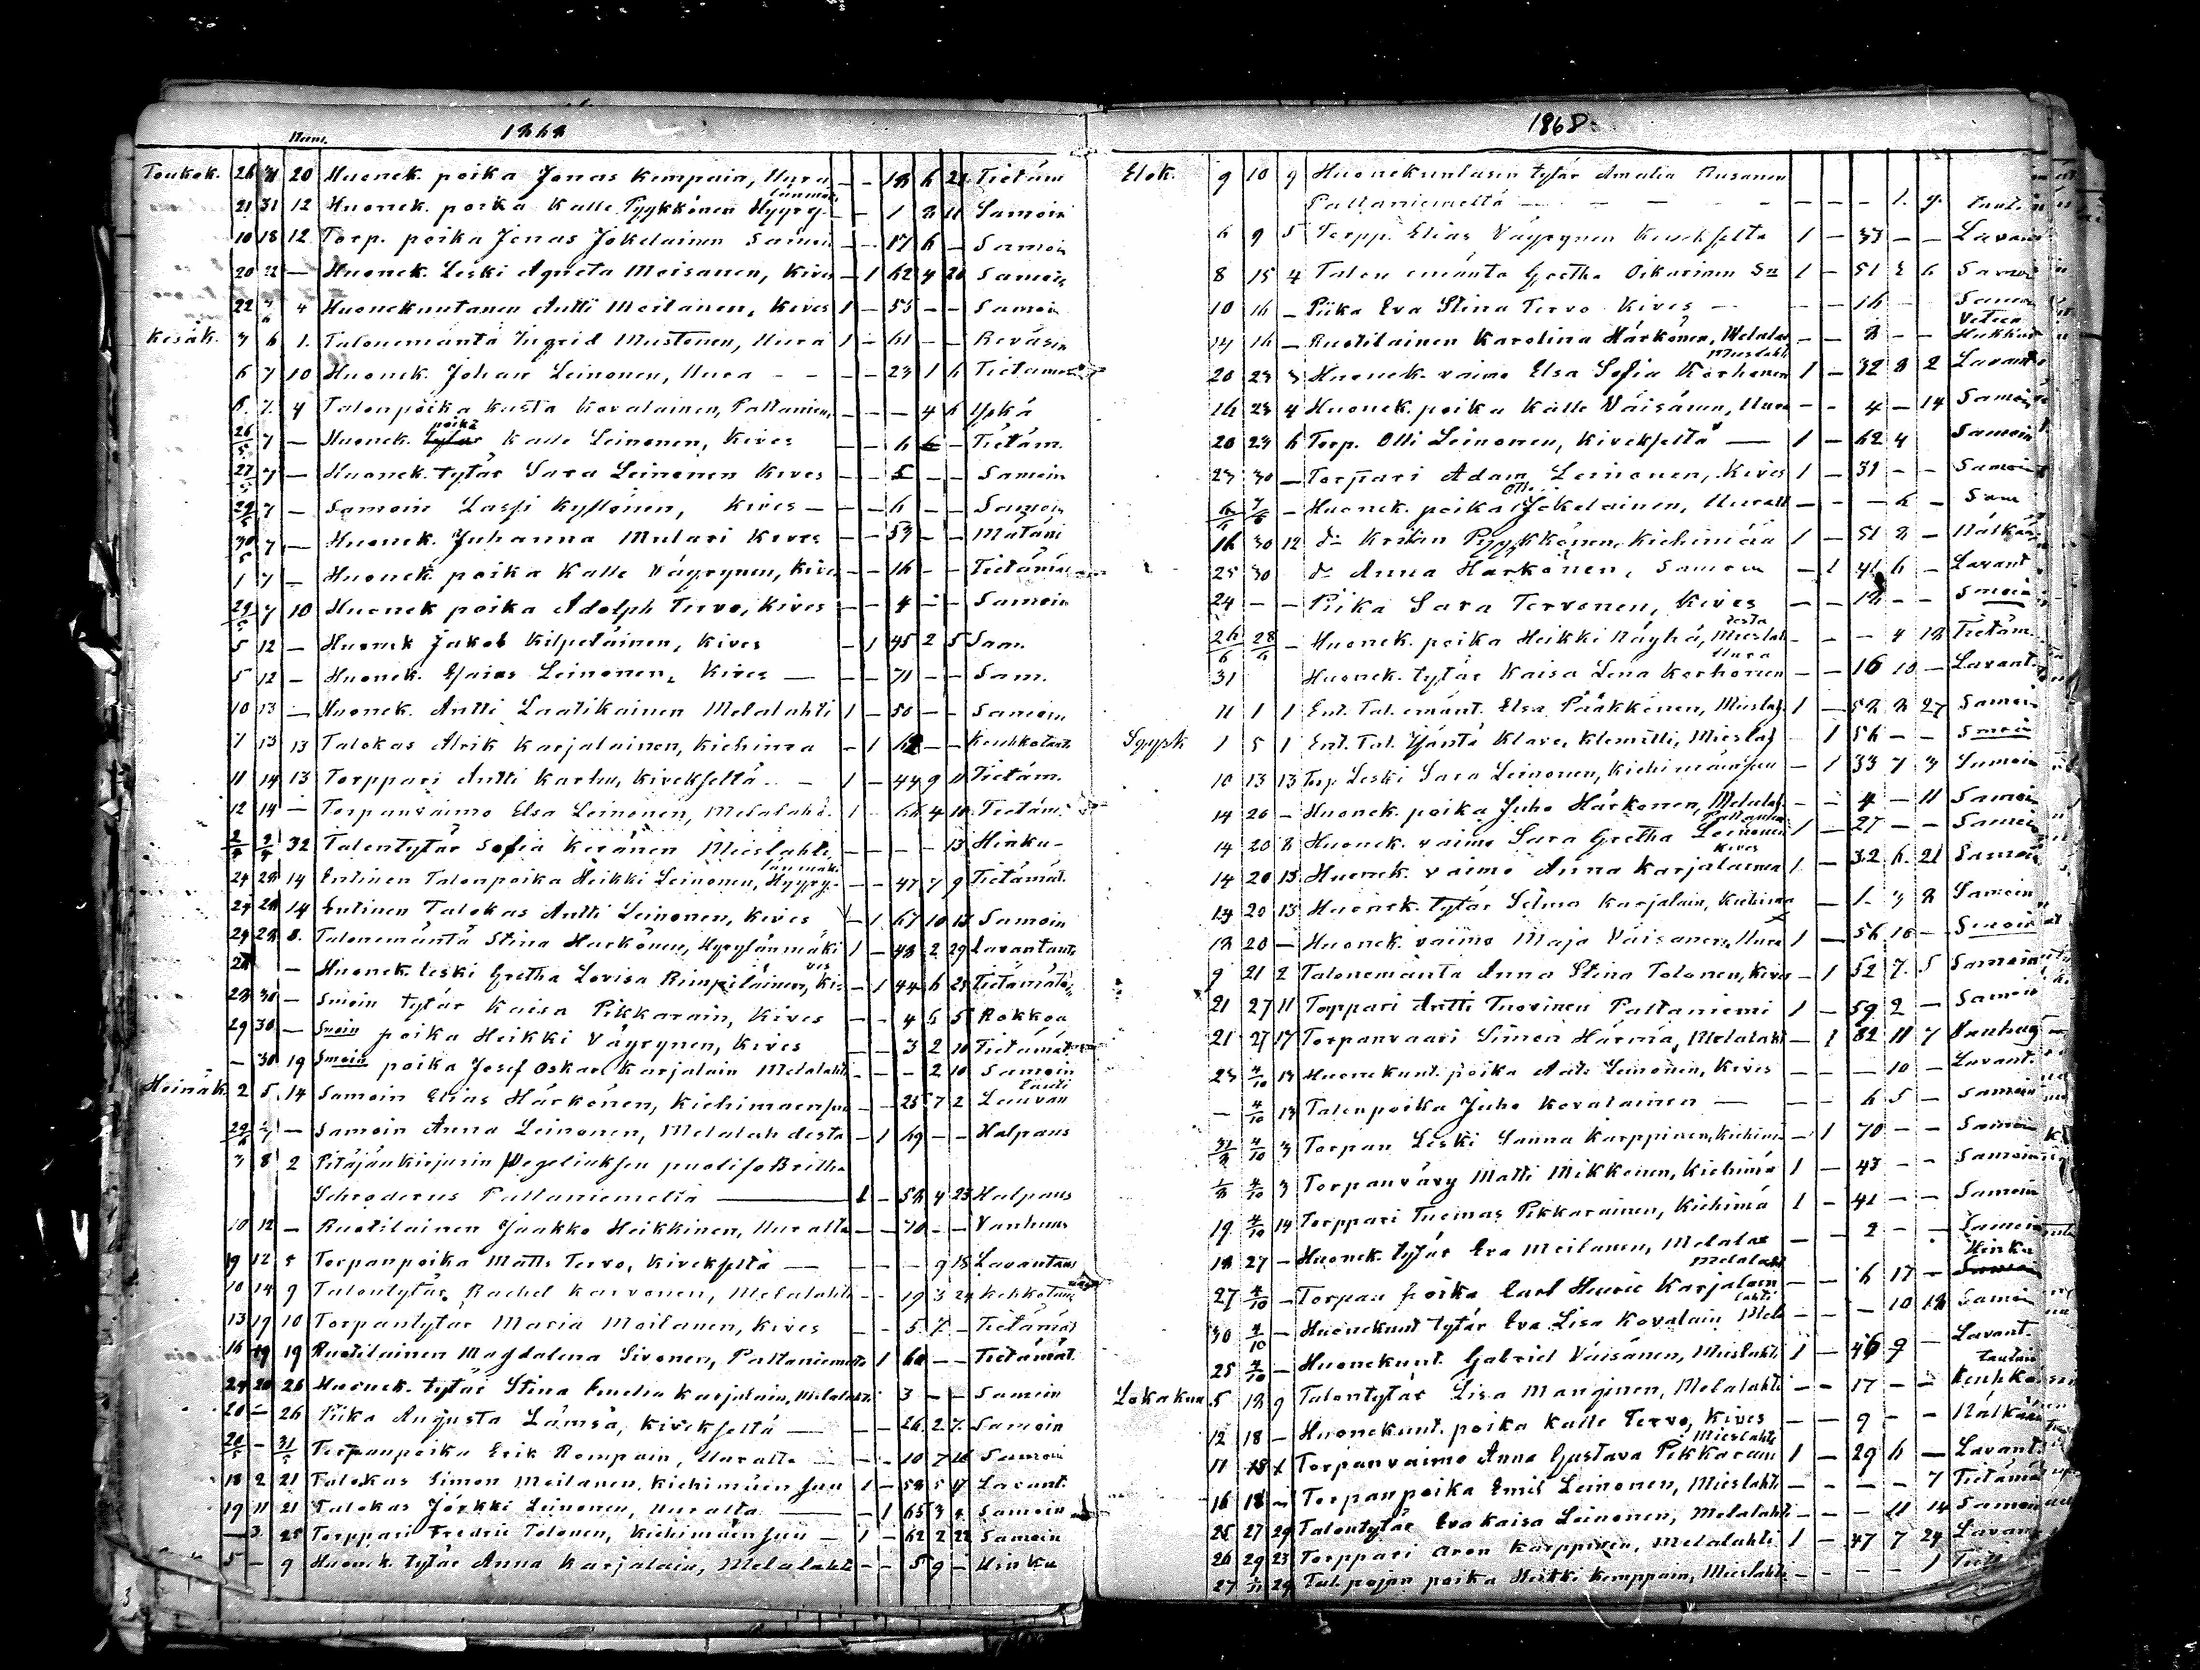 1868
Num.
Toukok. 26 31 20 Huonek. poika Jonas Kempain, Uura — — 18 6 21 Tietäm
21 31 12 Huonek. poika Kalle Pyykkönen Hyyry- — — 1 2 11 Samoin
10 18 12 Torp. poika Jonas Jokelainen Samoin — — 17 6 — Samoin
20 22 — Huonek. Leski Agneta Moisanen, Kives — 1 62 4 20 Samoin
22 4 Huonekuntanen Antti Moilanen, Kives 1 — 55 — — Samoin
Kesäk. 3 6 1. Talonemäntä Ingrid Mustonen, Uura 1 — 61 — — Reväsin
6 7 10 Huonek. Johan Leinonen, Uura — — — — 23 1 6 Tietäm
6. 7. 4 Talonpoika Kusta Kovalainen, Paltaniem, — — — 4 6 Yskä
26/5 7 — Huonek. poika Kalle Leinonen, Kives — — 6 6 — Tietäm.
27/5 7 — Huonek. tytär Sara Leinonen Kives — — 5 — — Samoin
29/5 7 — Samoin Lassi Kyllönen, Kives — — — 6 — — Samoin
30/5 7 — Huonek. Juhanna Mulari Kives — — 53 — — Mätäni
1 7 — Huonek. poika Kalle Väyrynen, Kives — — 16 — — Tietämä
29/5 7 10 Huonek poika Adolph Tervo, Kives — — 4 — — Samoin
5 12 — Huonek Jakob Kilpeläinen, Kives — 1 45 2 5 Sam.
5 12 — Huonek. Esaias Leinonen, Kives — — — 71 — — Sam.
10 13 — Huonek. Antti Laatikainen Melalahti 1 — 50 — — Samoin
7 13 13 Talokas Alrik Karjalainen, Kiehima — 1 62 — — Keuhkotaut
11 14 13 Torppari Antti Karhu, Kivekseltä — 1 — 44 9 11 Tietäm.
12 14 — Torpanvaimo Elsa Leinonen, Melalahd. 1 66 4 10 Tietäm.
32 Talontytär Sofia Keränen Mieslahti — — — — 13 Hinku-
24 28 14 Entinen Talonpoika Heikki Leinonen, Hyyry- — — 47 7 9 Tietämät.
27 28 14 Entinen Talokas Antti Leinonen, Kives — 1 67 10 12 Samoin
24 28 8. Talonemäntä Stina Härkönen, Hyryläinmäki 1 — 48 2 29 Lavantaut
28 — Huonek. leski Gretha Lovisa Rimpiläinen, Kives — 1 44 6 29 Tietämätö
28 30 — Smoin tytär Kaisa Pikkarain, Kives — — 4 6 5 Rokkoa
29 30 — Smoin poika Heikki Väyrynen, Kives — — 3 2 10 Tietämät
— 30 19 Smoin poika Josef Oskar Karjalain Melalahti — — — 2 10 Samoin
Heinäk. 2 5 14 Samoin Elias Härkönen, Kiehimaensuu — — 25 7 2 Lavan tauti
29/6 — Samoin Anna Leinonen, Melalahdesta — 1 69 — — Halpaus
3 8 2 Pitäjänkirjurin Wegeliuksen puoliso Britha
Schroderus Paltaniemeltä — 1 — 52 4 23 Halpaus
10 12 — Ruotilainen Jaakko Heikkinen, Uuralta — — 70 — — Vanhuus
19 12 5 Torpanpoika Matts Tervo, Kivekseltä — — — — 9 18 Lavantaus
10 14 9 Talontytär Rachel Karvonen, Melalahti — — 19 3 24 Kehkotau
13 19 10 Torpantytär Maria Moilanen, Kives — — 5 7 — Tietämä
16 19 19 Ruotilainen Magdalena Sivonen, Paltaniemelt 1 60 — — Tietämät
24 20 26 Huonek. tytär Stina Emelia Karjalain, Melalahti 3 — — Samoin
20 — 26 Piika Augusta Lämsä, Kivekseltä — — — 26 2 7. Samoin
20/5 — 31/5 Torpanpoika Erik Rompain, Uuralta — — — 10 7 16 Samoin
18 2 21 Talokas Simon Moilanen, Kiehimäensuu 1 — 58 5 17 Lavant.
19 11 21 Talokas Jörkki Leinonen, Uuralta — — 1 65 3 Samoin
— 3 25 Torppari Fredric Tolonen, Kiehimäensuu — 1 — 62 2 22 Samoin
5 — 9 Huonek. tytär Anna Karjalain, Melalahti — — 5 9 — Hinku
1868.
Elok. 9 10 9 Huonekuntasen tytär Amalia Rusanen
Paltaniemeltä — — — — — — — 1. 9. taut.
6 9 5 Torpp. Elias Väyrynen Kivekselta 1 — 33 — — Lavan
8 15 4 Talon emäntä Gretha Oikarinen Sa 1 — 51 6 Samoi
10 16 — Piika Eva Stina Tervo Kives — — — 16 Samoi
14 16 — Ruotilainen Karolina Härkönen, Melalaht — — 8 — Veteen Hukkut
20 23 3 Huonek. vaimo Elsa Sofia Korhonen Mieslahti 1 — 32 8 2 Lavant
16 23 4 Huonek. poika Kalle Väisänen, Uura — — 4 — 14 Samoi
20 23 6 Torp. Olli Leinonen, Kivekseltä — 1 — 62 4 Samoin
23 30 — Torpari Adam Leinonen, Kives 1 — 31 — — Samoin
— Huonek. poika Olli Jokelainen, Uuralt — — — 6 — Sam
16 30 12 do Kristian Pyykkönen, Kiehimää 1 — 51 2 — Nälkä
25 30 do Anna Härkönen, Samoin — 1 41 6 — Lavant.
24 — — Piika Sara Tervonen, Kives — — 12 — — Smoin
26/6 28/6 — Huonek. poika Heikki Näyhä, Mieslahdesta — — — 4 12 Tietäm.
31 Huonek. tytär Kaisa Lena Korhonen Uura — — 16 10 — Lavant.
11 1 1 Ent. Tal. emänt. Elsa Pääkkönen, Mieslah 1 — 52 2 27 Samoi
Syysk 1 5 1 Ent. Tal. Isäntä Klave. Klemitti, Mieslah — 1 56 — — Smoin
10 13 13 Torp. Leski Sara Leinonen, Kiehimäensuu — 1 33 7 3 Samoin
14 20 — Huonek. poika Juho Härkönen, Melalah — — 4 — 11 Samoin
14 20 8 Huonek. vaimo Sara Gretha Leinonen Paltaniem 1 — 27 — — Samoi
14 20 13 Huonek. vaimo Anna Karjalainen Kives 1 — 32 6. 21 Samoin
14 20 13 Huonek. tytär Selma Karjalain, Kiehimä — 1. 3 2 Samoin
18 20 — Huonek. vaimo Maja Väisänen, Uura 1 — 56 10 — Smoin
9 21 2 Talonemäntä Anna Stina Tolonen, Kives — 1 52 7. 5 Samoin
21 27 11 Torppari Antti Tuovinen Paltaniemi 1 — 59 2 — Samoin
21 27 17 Torpanvaari Simon Härmä, Melalaht — 1 82 11 7 Vanhuu
23 4/10 13 Huonekunt. poika Anti Leinonen, Kives — — — 10 — Lavant.
— 4/10 13 Talonpoika Juho Kovalainen — — — 6 5 — Samoin
31/8 4/10 3 Torpan Leski Sanna Karppinen, Kiehimä — 1 70 — — Samoin
4/10 3 Torpanvävy Matti Mikkonen, Kiehimä 1 — 43 — — Samoin
19 4/10 14 Torppari Tuomas Pikkarainen, Kiehimä 1 — 41 — — Samoin
18 27 — Huonek. tytär Eva Moilanen, Melalas — — 2 — — Samoin
27 4/10 — Torpan poika Carl Henric Karjalain Melalaht — — 6 17 — Hinku
30 4/10 — Huonekunt. tytär Eva Lisa Kovalain Melalahti — — — 10 12 Samoin
25 4/10 — Huonekunt. Gabriel Väisänen, Mieslahti 1 — 46 9 — Lavant.
Lokakuu 5 18 9 Talontytär Lisa Manginen, Melalahti — — 17 — — Keuhko tautiin
12 18 — Huonekunt. poika Kalle Tervo, Kives — — 9 — — Nälkä
11 18 Torpanvaimo Anna Gustava Pikkarain Mieslahti 1 — 29 6 — Lavant.
16 18 — Torpanpoika Emil Leinonen, Mieslahti — — — — 7 Tietämä
25 27 29 Talontytär Eva Kaisa Leinonen, Melalahti — — — 11 14 Samoin
26 29 23 Torppari Aron Karppinen, Melalahti 1 — 47 7 24 Lavan
27 29 Tal. pojan poika Heikki Kemppain, Mieslahti — — — — 1 Tiet